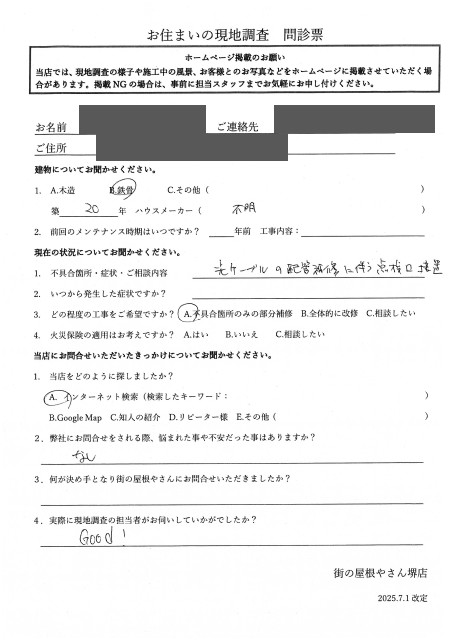 お住まいの現地調査 問診票
ホームページ掲載のお願い
当店では、現地調査の様子や施工中の風景、お客様とのお写真などをホームページに掲載させていただく場
合があります。掲載NGの場合は、事前に担当スタッフまでお気軽にお申し付けください。
お名前 ご連絡先
ご住所
建物についてお聞かせください。
1. A.木造 B.鉄骨 C.その他（ ）
築 20 年 ハウスメーカー（ 不明 ）
2. 前回のメンテナンス時期はいつですか？ 年前 工事内容：
現在の状況についてお聞かせください。
1. 不具合箇所・症状・ご相談内容 光ケーブルの配管補修に伴う点検口設置
2. いつから発生した症状ですか？
3. どの程度の工事をご希望ですか？ A.不具合箇所のみの部分補修 B.全体的に改修 C.相談したい
4. 火災保険の適用はお考えですか？ A.はい B.いいえ C.相談したい
当店にお問合せいただいたきっかけについてお聞かせください。
1. 当店をどのように探しましたか？
A. インターネット検索（検索したキーワード： ）
B.Google Map C.知人の紹介 D.リピーター様 E.その他（ ）
2．弊社にお問合せをされる際、悩まれた事や不安だった事はありますか？
なし
3．何が決め手となり街の屋根やさんにお問合せいただきましたか？
4．実際に現地調査の担当者がお伺いしていかがでしたか？
Good!
街の屋根やさん堺店
2025.7.1 改定